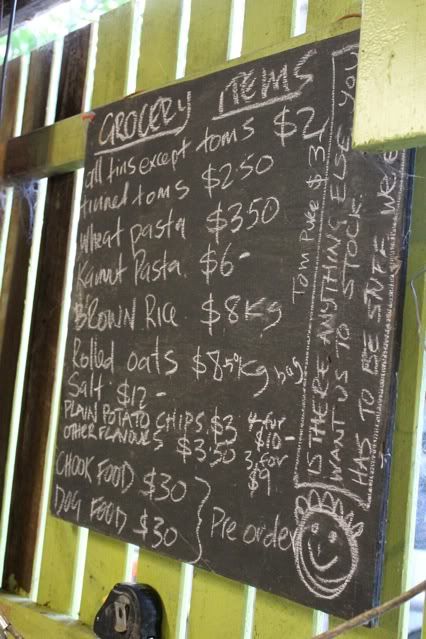 GROCERY ITEMS
all tins except toms $2
tinned toms $2.50
Wheat pasta $3.50
Kamut Pasta $6-
BROWN RICE $8kg
Rolled oats $8.50kg bag
Salt $12-
PLAIN POTATO CHIPS $3 4 for $10-
OTHER FLAVOURS $3.50 3 for $9
CHOOK FOOD $30
DOG FOOD $30
Pre order
Tom Puree $3
IS THERE ANYTHING ELSE YOU
WANT US TO STOCK.
HAS TO BE